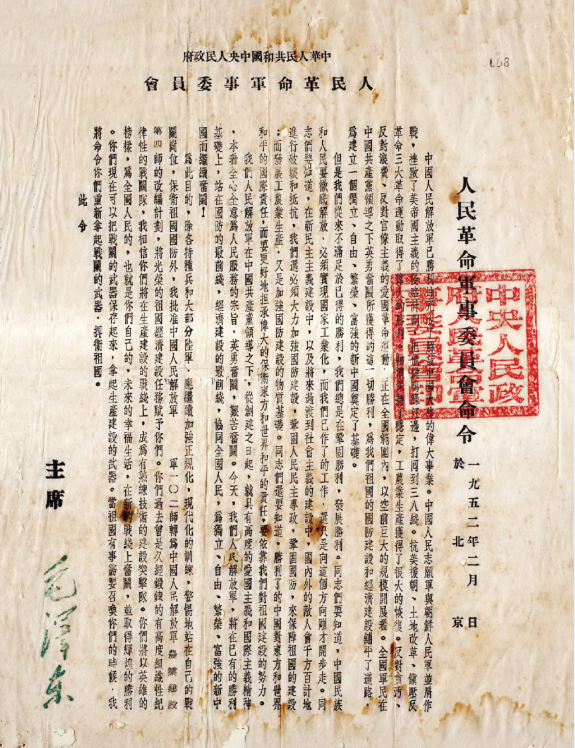 中華人民共和國中央人民政府
人民革命軍事委員會
人民革命軍事委員會命令
一九五二年二月 日
於北京
中央人民政
府人民革命
軍事委員會印
中國人民解放軍已勝利地完成了
的偉大事業。中國人民志願軍與朝鮮人民軍並肩作
戰，挫敗了美帝國主義的
打回到三八綫。抗美援朝、土地改革、鎮壓反
革命三大革命運動取得了
穩定，工農業生產獲得了很大的恢復。反對貪污、
反對浪費、反對官僚主義的愛國革命運動，正在全國範圍內，以空前巨大的規模開展着。全國軍民在
中國共產黨領導之下英勇奮鬭所獲得的這一切勝利，爲我們祖國的國防建設和經濟建設鋪平了道路，
爲建立一個獨立、自由、繁榮、富強的新中國奠定了基礎。
但是我們從來不滿足於已得的勝利，我們總是在鞏固勝利，發展勝利。同志們要知道，中國民族
和人民要徹底解放，必須實現國家工業化，而我們已作了的工作，還只是向這個方向剛才開步走。同
志們要知道，在新民主主義建設中，以及將來過渡到社會主義的建設中，國內外的敵人會千方百計地
進行破壞和抵抗，我們還必須大力加強國防建設，鞏固人民民主專政，鞏固國防，來保障祖國的建設
；而發展工農業生產，又是加強國防建設的物質基礎。同志們還要知道，勝利了的中國對東方和世界
和平的國際責任，而要更好地担承偉大的保衛東方和世界和平的責任，要依靠我們對祖國建設的努力。
我們人民解放軍在中國共產黨領導之下，從創建之日起，就具有高度的愛國主義和國際主義精神
，本着全心全意爲人民服務的宗旨，英勇奮鬭，艱苦奮鬭。今天，我們人民解放軍，將在已有的勝利
基礎上，站在國防的最前綫，經濟建設的最前綫，協同全國人民，爲獨立、自由、繁榮、富強的新中
國而繼續奮鬭！
爲此目的，除各特種兵和大部分陸軍，應繼續加強正規化，現代化的訓練，警惕地站在自己的戰
鬭崗位，保衛祖國國防外，我批准中國人民解放軍 軍一〇二師轉爲中國人民解放軍 農業建設
第四師的改編計劃，將光榮的祖國經濟建設任務賦予你們。你們過去曾是久經鍛鍊的有高度組織性紀
律性的戰鬭隊，我相信你們將在生產建設的戰綫上，成爲有熟練技術的建設突擊隊。你們將以英雄的
榜樣，爲全國人民的，也就是你們自己的，未來的幸福生活，在新的戰綫上奮鬭，並取得輝煌的勝利
。你們現在可以把戰鬭的武器保存起來，拿起生產建設的武器。當祖國有事需要召喚你們的時候，我
將命令你們重新拿起戰鬭的武器，捍衛祖國。
此令
主席
毛澤東